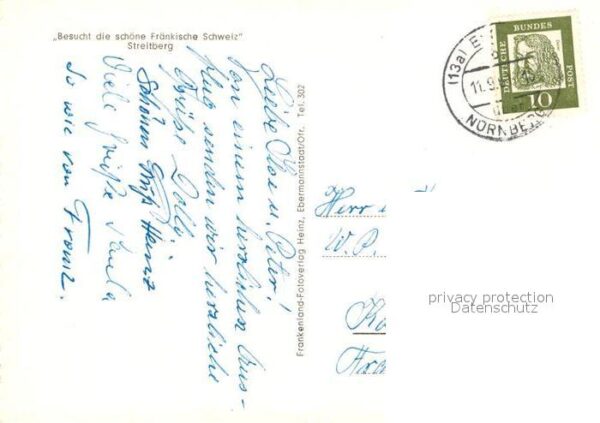 „Besucht die schöne Fränkische Schweiz"
Streitberg
Liebe Ilse u. Peter!
Von einem herrlichen Aus-
flug senden wir herzliche
Grüße Dolli
Schönen Gruß Heinz
Viele Grüße Paula
So wie von Franz.
Frankenland-Fotoverlag Heinz, Ebermannstadt/Ofr. Tel. 302
(13a) E
11.9.
NÜRNBERG
DEUTSCHE BUNDES POST
10
Herr
W.P.
privacy protection
Datenschutz